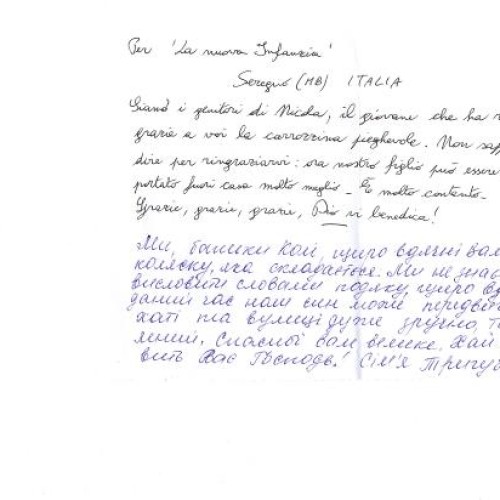 Per 'La nuova Infanzia'
Seregno (MB) ITALIA
Siamo i genitori di Nicola, il giovane che ha
grazie a voi la carrozzina pieghevole. Non
dire per ringraziarvi: ora nostro figlio può essere
portato fuori casa molto meglio - È molto contento -
Grazie, grazie, grazie, Dio vi benedica!
Ми, батьки Колі, щиро вдячні вам
коляску, яка складається. Ми не
висловити словами подяку, щиро
даний час наш син може
хаті та вулиці дуже зручно,
Спасибі вам велике. Хай
вить Вас Господь! Сім'я